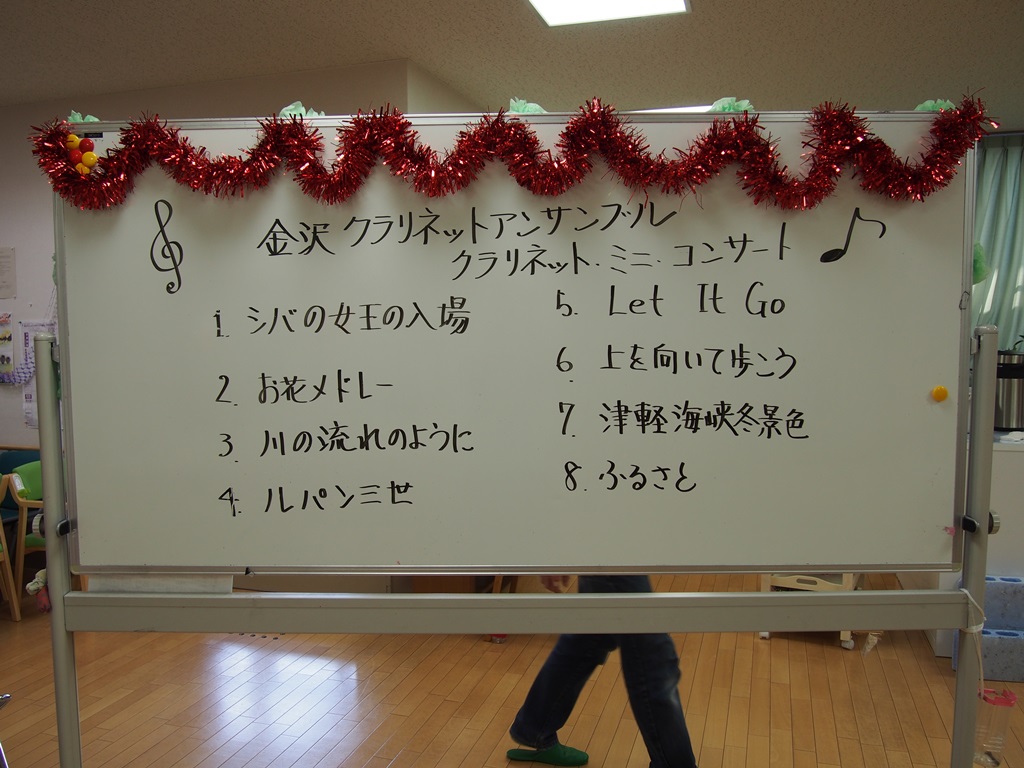 金沢 クラリネットアンサンブル
クラリネット・ミニ・コンサート
1. シバの女王の入場
2. お花メドレー
3. 川の流れのように
4. ルパン三世
5. Let It Go
6. 上を向いて歩こう
7. 津軽海峡冬景色
8. ふるさと